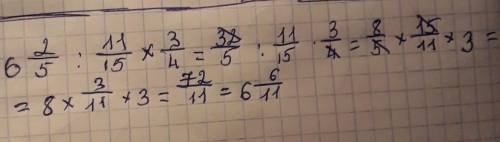 6 2/5 : 11/15 × 3/4 = 32/5 : 11/15 · 3/4 = 8/5 × 15/11 × 3 =
= 8 × 3/11 × 3 = 72/11 = 6 6/11